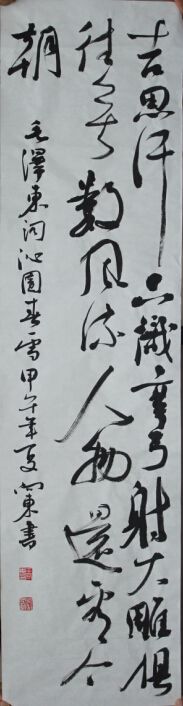 吉思汗只識彎弓射大雕俱
往矣數風流人物還看今
朝
毛澤東詞沁園春雪甲午年夏向東書